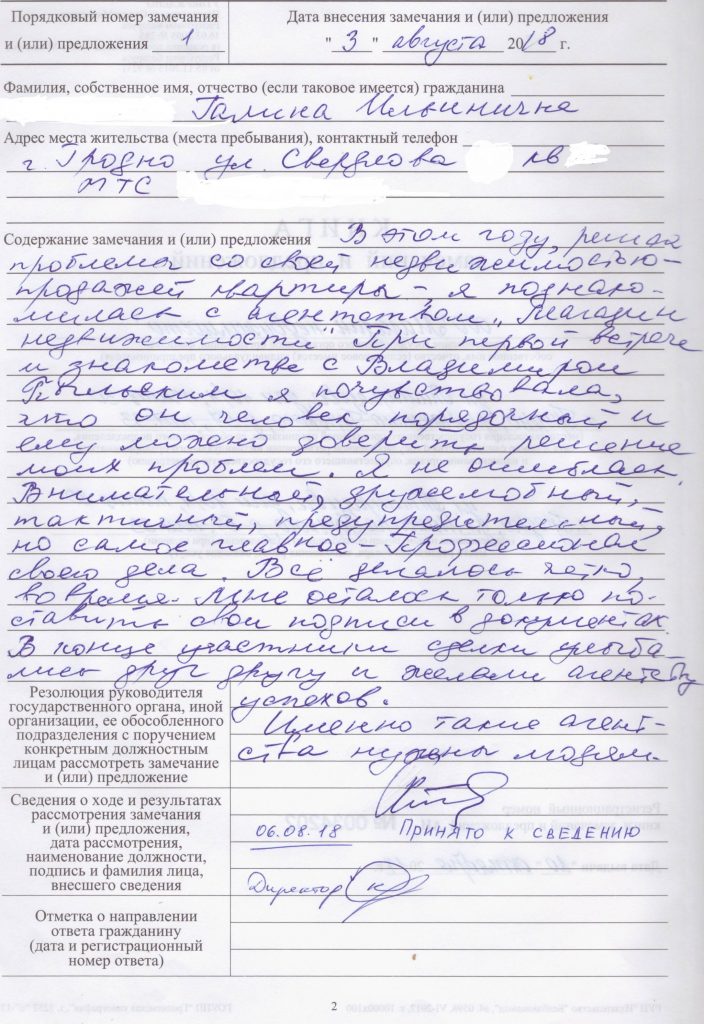 Порядковый номер замечания
и (или) предложения 1
Дата внесения замечания и (или) предложения
" 3 " августа 2018 г.
Фамилия, собственное имя, отчество (если таковое имеется) гражданина
Галина Ильинична
Адрес места жительства (места пребывания), контактный телефон
г. Гродно ул. Свердлова кв
МТС
Содержание замечания и (или) предложения В этом году, решая
проблемы со своей недвижимостью -
продажей квартиры - я познако-
милась с агентством „Магазин
недвижимости". При первой встрече
и знакомстве с Владимиром
я почувствовала,
что он человек порядочный и
ему можно доверить решение
моих проблем. Я не ошиблась.
Внимательный, дружелюбный,
тактичный, предупредительный,
но самое главное - Профессионал
своего дела. Всё делалось чётко,
во время. Мне осталось только по-
ставить свои подписи в документах.
В конце участники сделки улыба-
лись друг другу и желали агентству
успехов.
Именно такие агент-
ства нужны людям.
Резолюция руководителя
государственного органа, иной
организации, ее обособленного
подразделения с поручением
конкретным должностным
лицам рассмотреть замечание
и (или) предложение
Сведения о ходе и результатах
рассмотрения замечания
и (или) предложения,
дата рассмотрения,
наименование должности,
подпись и фамилия лица,
внесшего сведения
06.08.18 ПРИНЯТО К СВЕДЕНИЮ
Директор
Отметка о направлении
ответа гражданину
(дата и регистрационный
номер ответа)
2